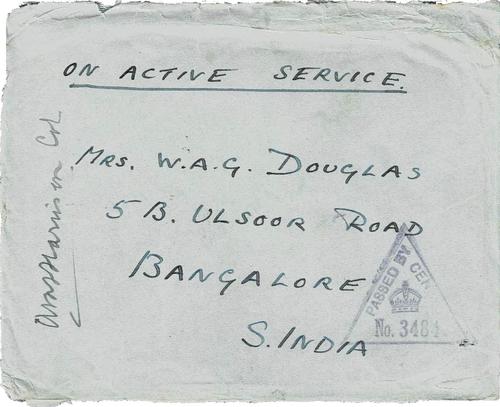 ON ACTIVE SERVICE.
MRS. W.A.G. DOUGLAS
5 B. ULSOOR ROAD
BANGALORE
S. INDIA
PASSED BY
No. 3484
Harrison Col